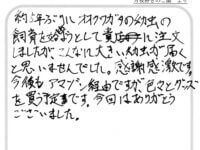 約5年ぶりにオオクワガタの幼虫の
飼育を始ようとして貴店に注文
しましたが、こんなに大きい幼虫が届く
と思いませんでした。感謝感激です。
今後も アマゾン経由ですが色々とグッズ
を買う予定です。今回はありがとう
ございました。